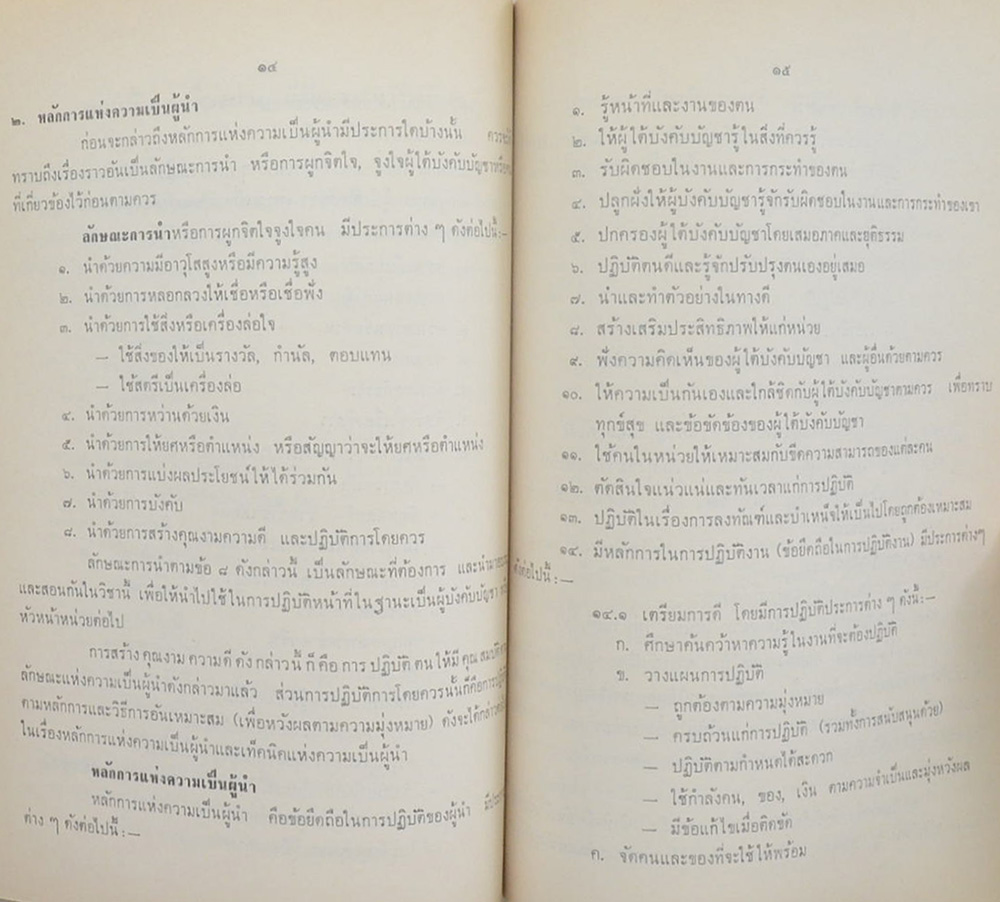 ๑๔
๒. หลักการแห่งความเป็นผู้นำ
ก่อนจะกล่าวถึงหลักการแห่งความเป็นผู้นำมีประการใดบ้างนั้น
ทราบถึงเรื่องราวอันเป็นลักษณะการนำ หรือการผูกจิตใจ, จูงใจผู้ใต้บังคับบัญชา
ที่เกี่ยวข้องไว้ก่อนตามควร
ลักษณะการนำหรือการผูกจิตใจจูงใจคน มีประการต่าง ๆ ดังต่อไปนี้:–
๑. นำด้วยความมีอาวุโสสูงหรือมีความรู้สูง
๒. นำด้วยการหลอกลวงให้เชื่อหรือเชื่อฟัง
๓. นำด้วยการใช้สิ่งหรือเครื่องล่อใจ
— ใช้สิ่งของให้เป็นรางวัล, กำนัล, ตอบแทน
— ใช้สตรีเป็นเครื่องล่อ
๔. นำด้วยการหว่านด้วยเงิน
๕. นำด้วยการให้ยศหรือตำแหน่ง หรือสัญญาว่าจะให้ยศหรือตำแหน่ง
๖. นำด้วยการแบ่งผลประโยชน์ให้ได้ร่วมกัน
๗. นำด้วยการบังคับ
๘. นำด้วยการสร้างคุณงามความดี และปฏิบัติการโดยควร
ลักษณะการนำตามข้อ ๘ ดังกล่าวนี้ เป็นลักษณะที่ต้องการ
และสอนกันในวิชานี้ เพื่อให้นำไปใช้ในการปฏิบัติหน้าที่ในฐานะเป็นผู้บังคับบัญชา
หัวหน้าหน่วยต่อไป
การสร้างคุณงามความดีดังกล่าวนี้ก็คือการปฏิบัติตนให้มี
ลักษณะแห่งความเป็นผู้นำดังกล่าวมาแล้ว ส่วนการปฏิบัติการโดยควรนั้นก็คือ
ตามหลักการและวิธีการอันเหมาะสม (เพื่อหวังผลตามความมุ่งหมาย)
ในเรื่องหลักการแห่งความเป็นผู้นำและเท็คนิคแห่งความเป็นผู้นำ
หลักการแห่งความเป็นผู้นำ
หลักการแห่งความเป็นผู้นำ คือข้อยึดถือในการปฏิบัติของผู้นำ
ต่าง ๆ ดังต่อไปนี้:—
๑๕
๑. รู้หน้าที่และงานของตน
๒. ให้ผู้ใต้บังคับบัญชารู้ในสิ่งที่ควรรู้
๓. รับผิดชอบในงานและการกระทำของตน
๔. ปลูกฝังให้ผู้บังคับบัญชารู้จักรับผิดชอบในงานและการกระทำของเขา
๕. ปกครองผู้ใต้บังคับบัญชาโดยเสมอภาคและยุติธรรม
๖. ปฏิบัติตนดีและรู้จักปรับปรุงตนเองอยู่เสมอ
๗. นำและทำตัวอย่างในทางดี
๘. สร้างเสริมประสิทธิภาพให้แก่หน่วย
๙. ฟังความคิดเห็นของผู้ใต้บังคับบัญชา และผู้อื่นด้วยตามควร
๑๐. ให้ความเป็นกันเองและใกล้ชิดกับผู้ใต้บังคับบัญชาตามควร เพื่อทราบ
ทุกข์สุข และข้อขัดข้องของผู้ใต้บังคับบัญชา
๑๑. ใช้คนในหน่วยให้เหมาะสมกับขีดความสามารถของแต่ละคน
๑๒. ตัดสินใจแน่วแน่และทันเวลาแก่การปฏิบัติ
๑๓. ปฏิบัติในเรื่องการลงทัณฑ์และบำเหน็จให้เป็นไปโดยถูกต้องเหมาะสม
๑๔. มีหลักการในการปฏิบัติงาน (ข้อยึดถือในการปฏิบัติงาน) มีประการต่างๆ
ดังต่อไปนี้:—
๑๔.๑ เตรียมการดี โดยมีการปฏิบัติประการต่าง ๆ ดังนี้:—
ก. ศึกษาค้นคว้าหาความรู้ในงานที่จะต้องปฏิบัติ
ข. วางแผนการปฏิบัติ
— ถูกต้องตามความมุ่งหมาย
— ครบถ้วนแก่การปฏิบัติ (รวมทั้งการสนับสนุนด้วย)
— ปฏิบัติตามกำหนดได้สะดวก
— ใช้กำลังคน, ของ, เงิน ตามความจำเป็นและมุ่งหวังผล
— มีข้อแก้ไขเมื่อติดขัด
ค. จัดคนและของที่จะใช้ให้พร้อม